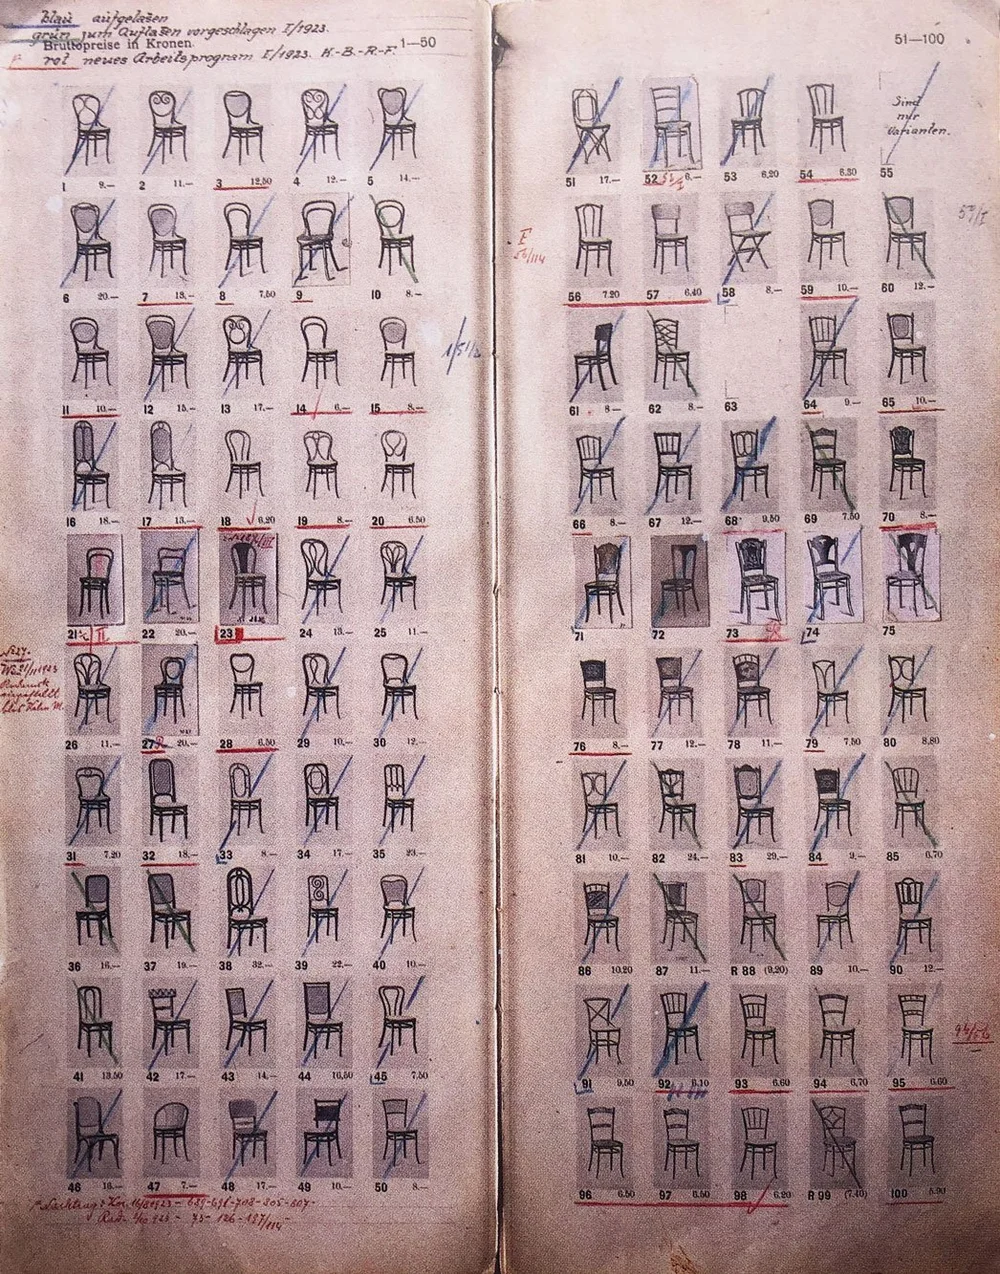 blau aufgelaßen
grün zum Auflaßen vorgeschlagen I/1923.
Bruttopreise in Kronen. 1—50
rot neues Arbeitsprogram I/1923. H.-B.-R.-F.
1 9.— 2 11.— 3 12,50 4 12.— 5 14.—
6 20.— 7 13.— 8 7,50 9 10 8.—
11 10.— 12 15.— 13 17.— 14 6.— 15 8.—
16 18.— 17 13.— 18 6,20 19 8.— 20 6,50
21 II 22 20.— 23 24 13.— 25 11.—
26 11.— 27 20.— 28 6,50 29 10.— 30 12.—
31 7,20 32 18.— 33 8.— 34 17.— 35 23.—
36 16.— 37 19.— 38 32.— 39 22.— 40 10.—
41 13,50 42 17.— 43 14.— 44 16,50 45 7,50
46 16.— 47 7.— 48 17.— 49 10.— 50 8.—
51—100
Sind
nur
Varianten.
51 17.— 52 6.— 53 6,20 54 6,30 55
56 7,20 57 6,40 58 8.— 59 10.— 60 12.—
61 8.— 62 8.— 63 64 9.— 65 10.—
66 8.— 67 12.— 68 9,50 69 7,50 70 8.—
71 72 73 74 75
76 8.— 77 12.— 78 11.— 79 7,50 80 8,80
81 10.— 82 24.— 83 29.— 84 9.— 85 6,70
86 10,20 87 11.— R 88 (9,20) 89 10.— 90 12.—
91 9,50 92 6,10 93 6,60 94 6,70 95 6,60
96 6,50 97 6,50 98 6,20 R 99 (7,40) 100 5,90